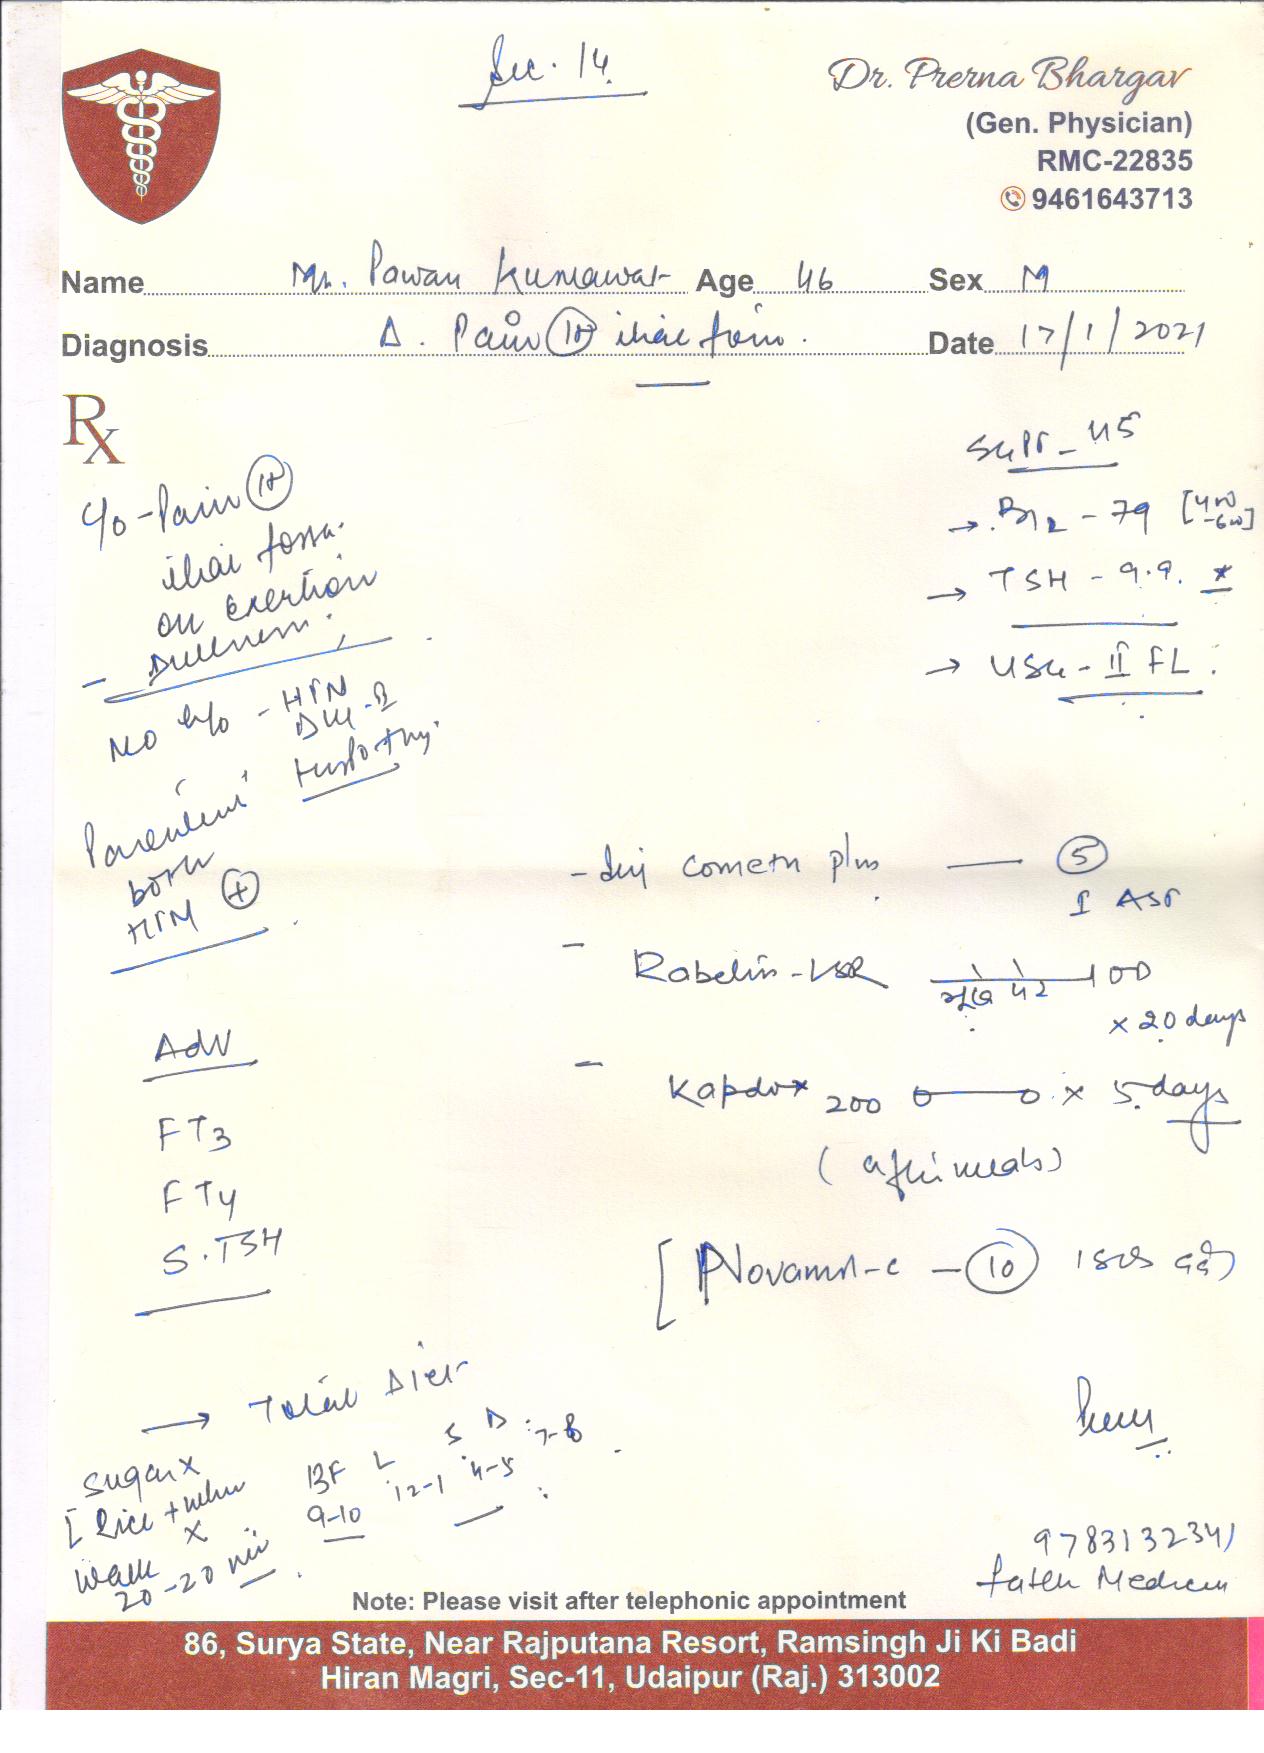 Sec. 14
Dr. Prerna Bhargav
(Gen. Physician)
RMC-22835
9461643713
Name Mr. Pawan Kumawat Age 46 Sex M
Diagnosis Δ. Pain (Rt) iliac Date 17/1/2021
Rx
C/o - Pain (Rt)
iliac fossa.
on exertion
- Dullness.
No H/o - HTN
DM-2
Parental
both
HTN (+)
SGPT - 45
→ B12 - 79
→ TSH - 9.9. *
→ USG - II FL
- Inj plus — (5)
- Rabelin-LSR OD
x 20 days
- Kapdox 200 0—0 x 5 days
(after meals)
[ - (10)
Adv
FT3
FT4
S.TSH
→ Total Diet
Sugar x
BF L S D 7-8
9-10 12-1 4-5
[ Rice +
x
Walk
20-20 min
9783132341
Note: Please visit after telephonic appointment
86, Surya State, Near Rajputana Resort, Ramsingh Ji Ki Badi
Hiran Magri, Sec-11, Udaipur (Raj.) 313002